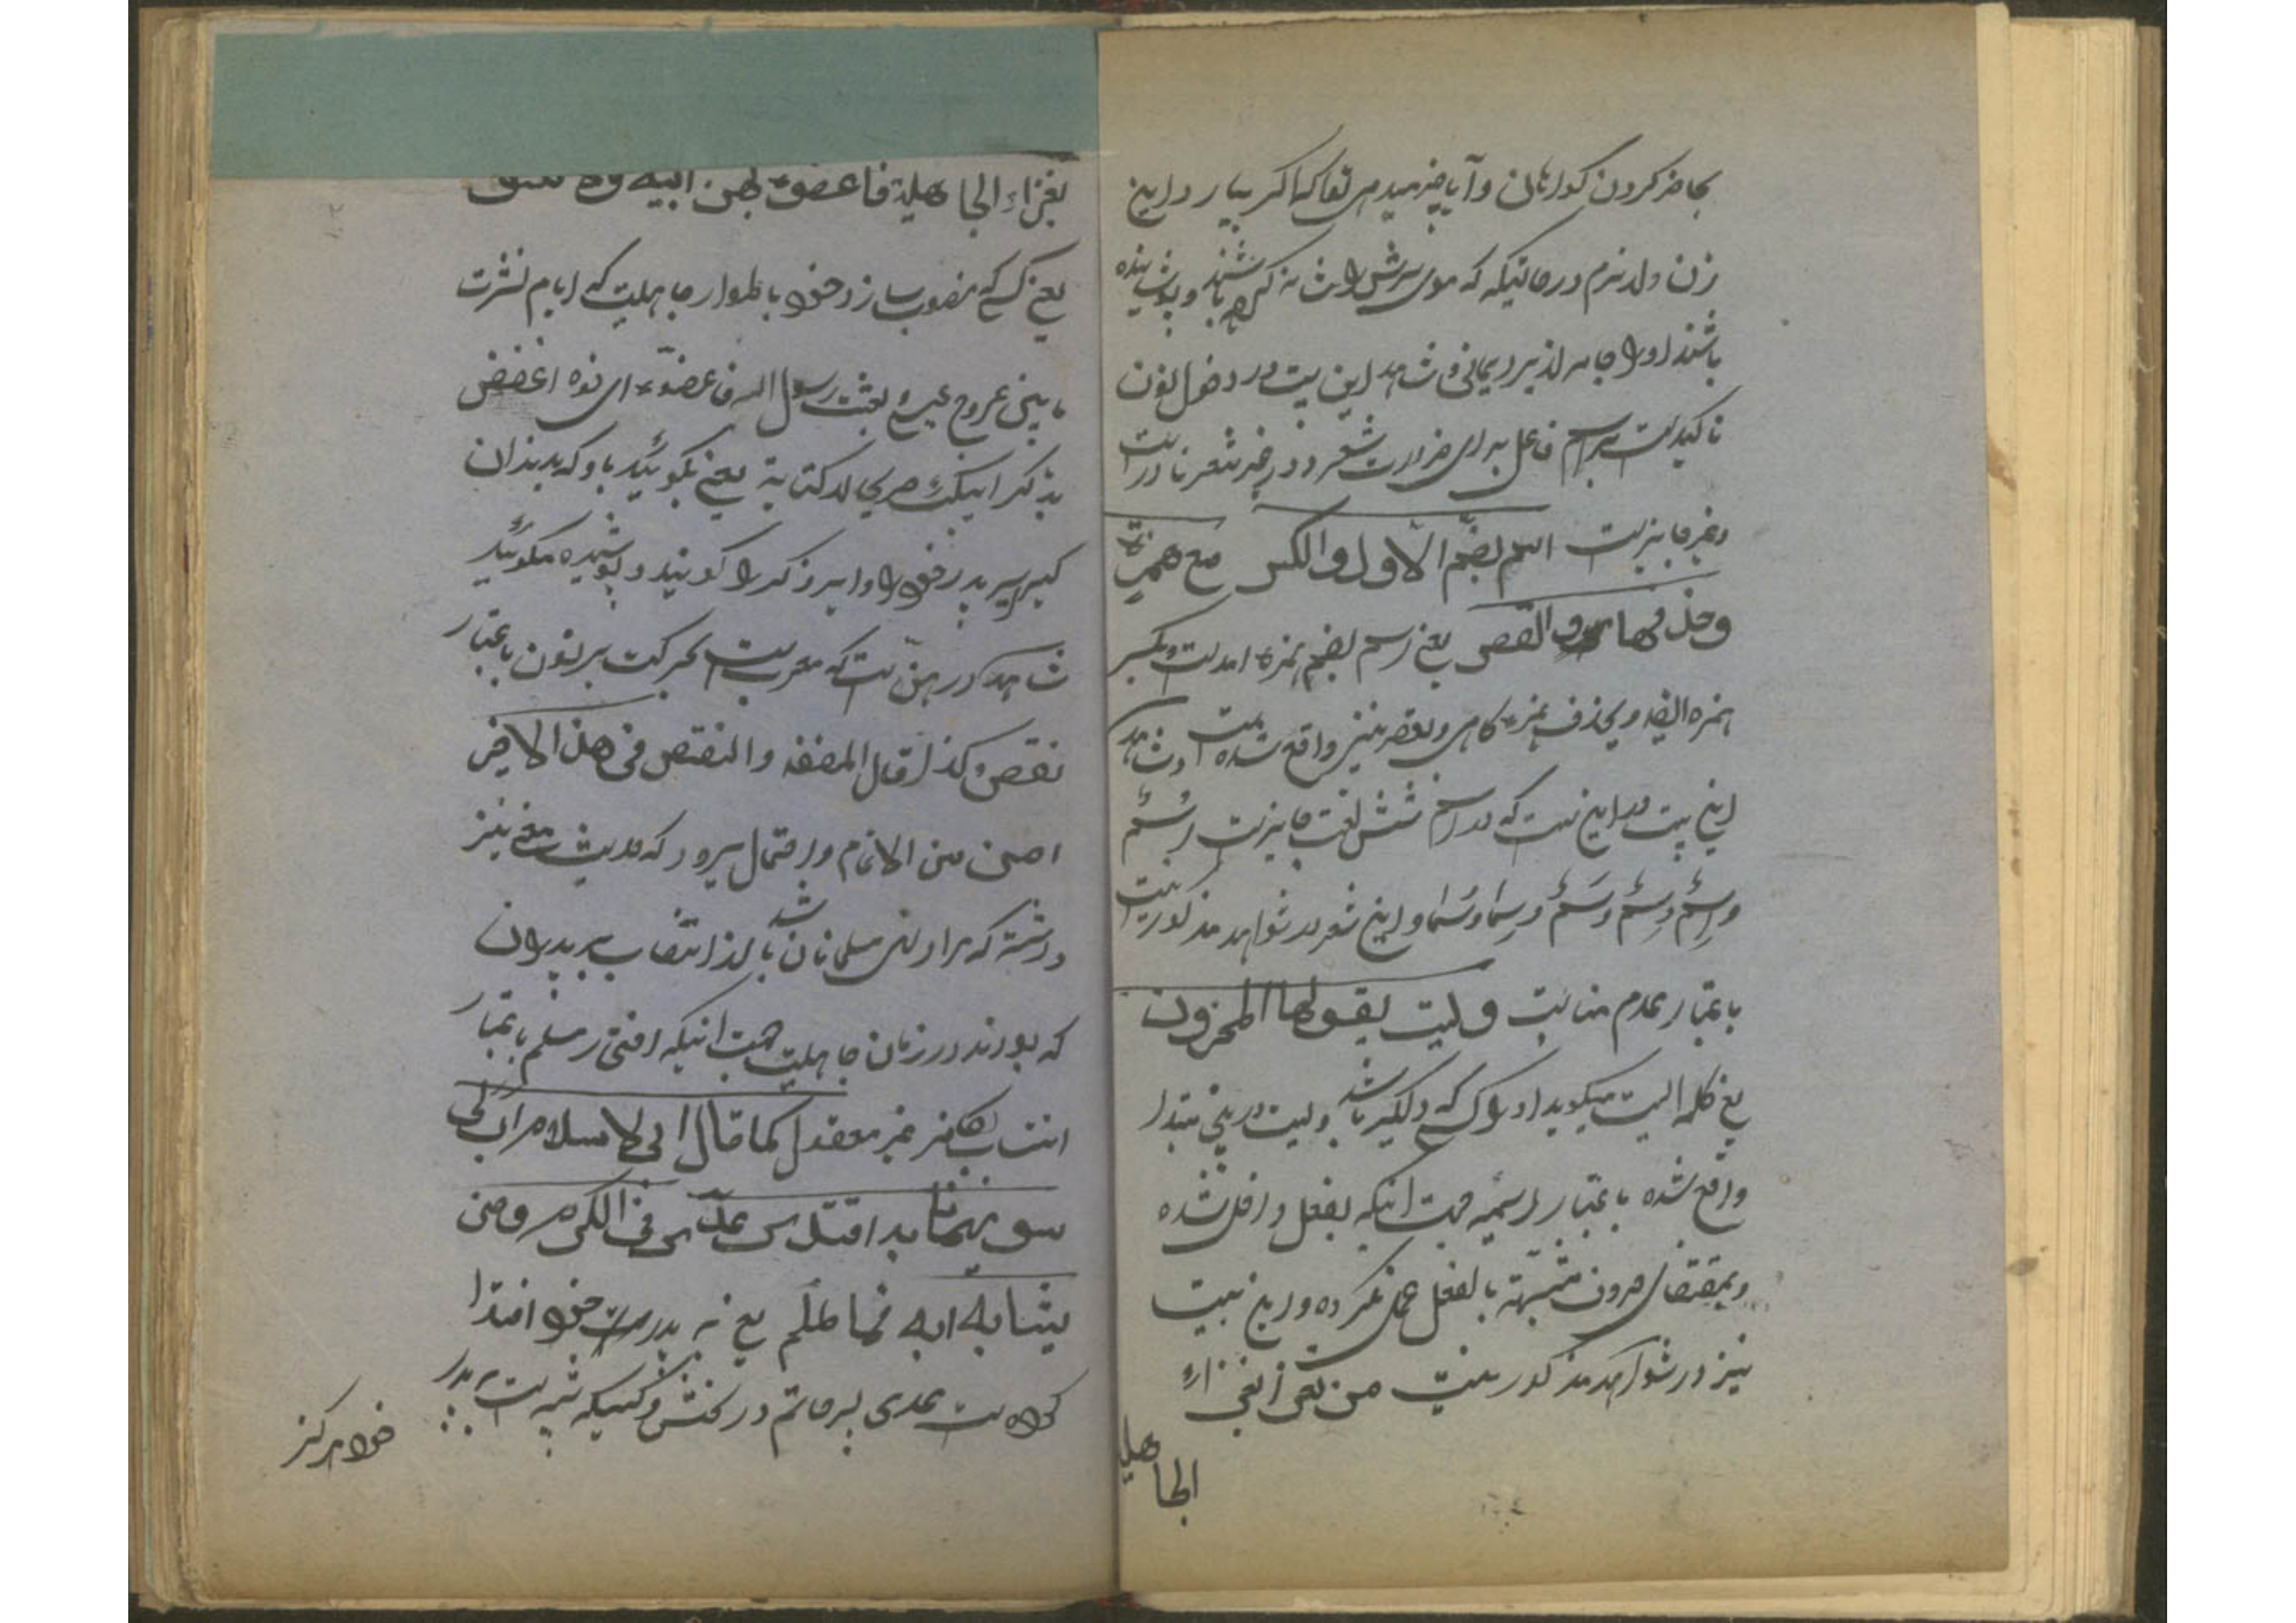 بحاضر کردن کواهان و آیا خبر میدهی تو اکر بیارد این
زن ولد نرم در حالتیکه که موی سرش را شانه کرده باشند و پوشانیده
باشند او را جامه از برد یمانی و شاهد این بیت در دخول نون
تاکید است بر اسم فاعل برای ضرورت شعر و در غیر شعر نادر است
و غیر جایز است اسم بضم الاول والکسر مع همزة
وحذفها والقصر یعنی اسم بضم همزه آمده است و بکسر
همزه ایضا و بحذف همزه کاهی و بقصر نیز واقع شده است و شاهد
این بیت در این است که در اسم شش لغت جایز است اُسْمٌ
و اِسْمٌ و سِمٌ و سَمٌ و سِمًا و سُمًا و این شعر در شواهد مذکور نیست
باعتبار عدم مناسبت ولیت یقولها المحزون
یعنی کلمه لیت میکوید او را کسی که دلکیر باشد و لیت در اینجا مبتدا
واقع شده باعتبار اسمیة جهت انیکه بفعل داخل نشده
و بمقتضای حروف مشبهة بالفعل عمل نکرده و این بیت
نیز در شواهد مذکور نیست من تعزی بعزاء
الجاهلیة
بعزاء الجاهلیة فاعضوه بهن ابیه ولا
یعنی کسی که منسوب سازد خود را باطوار جاهلیت که ایام فترت
ما بین عروج عیسی و بعثت رسول الله فاعضوه ای
بذکر ابیک صریحا لا کنایة یعنی بکوئید باو که بدندان
کیر پدر خود را و ایر و ذکر را کویند و پوشیده مکوئید
شاهد در هن است که معرب است بحرکت بر نون باعتبار
نقص و کذا قال المصنف والنقص فی هذا الاخیر
احسن من الاتمام و احتمال میرود که حدیث معنی نیز
داشته که مراد نهی مسلمانان باشد از انتساب به پدران
که بودند در زمان جاهلیت جهت انیکه افتخار مسلم باعتبار
انتساب بکافر غیر معقول کما قال ابی الاسلام لا اب لی
سواه بابه اقتدی عدی فی الکرم ومن
یشابه ابه فما ظلم یعنی به پدر خود اقتدا
کرده است عدی پسر حاتم در بخشش و کسیکه شبیه است به پدر
خود هرکز